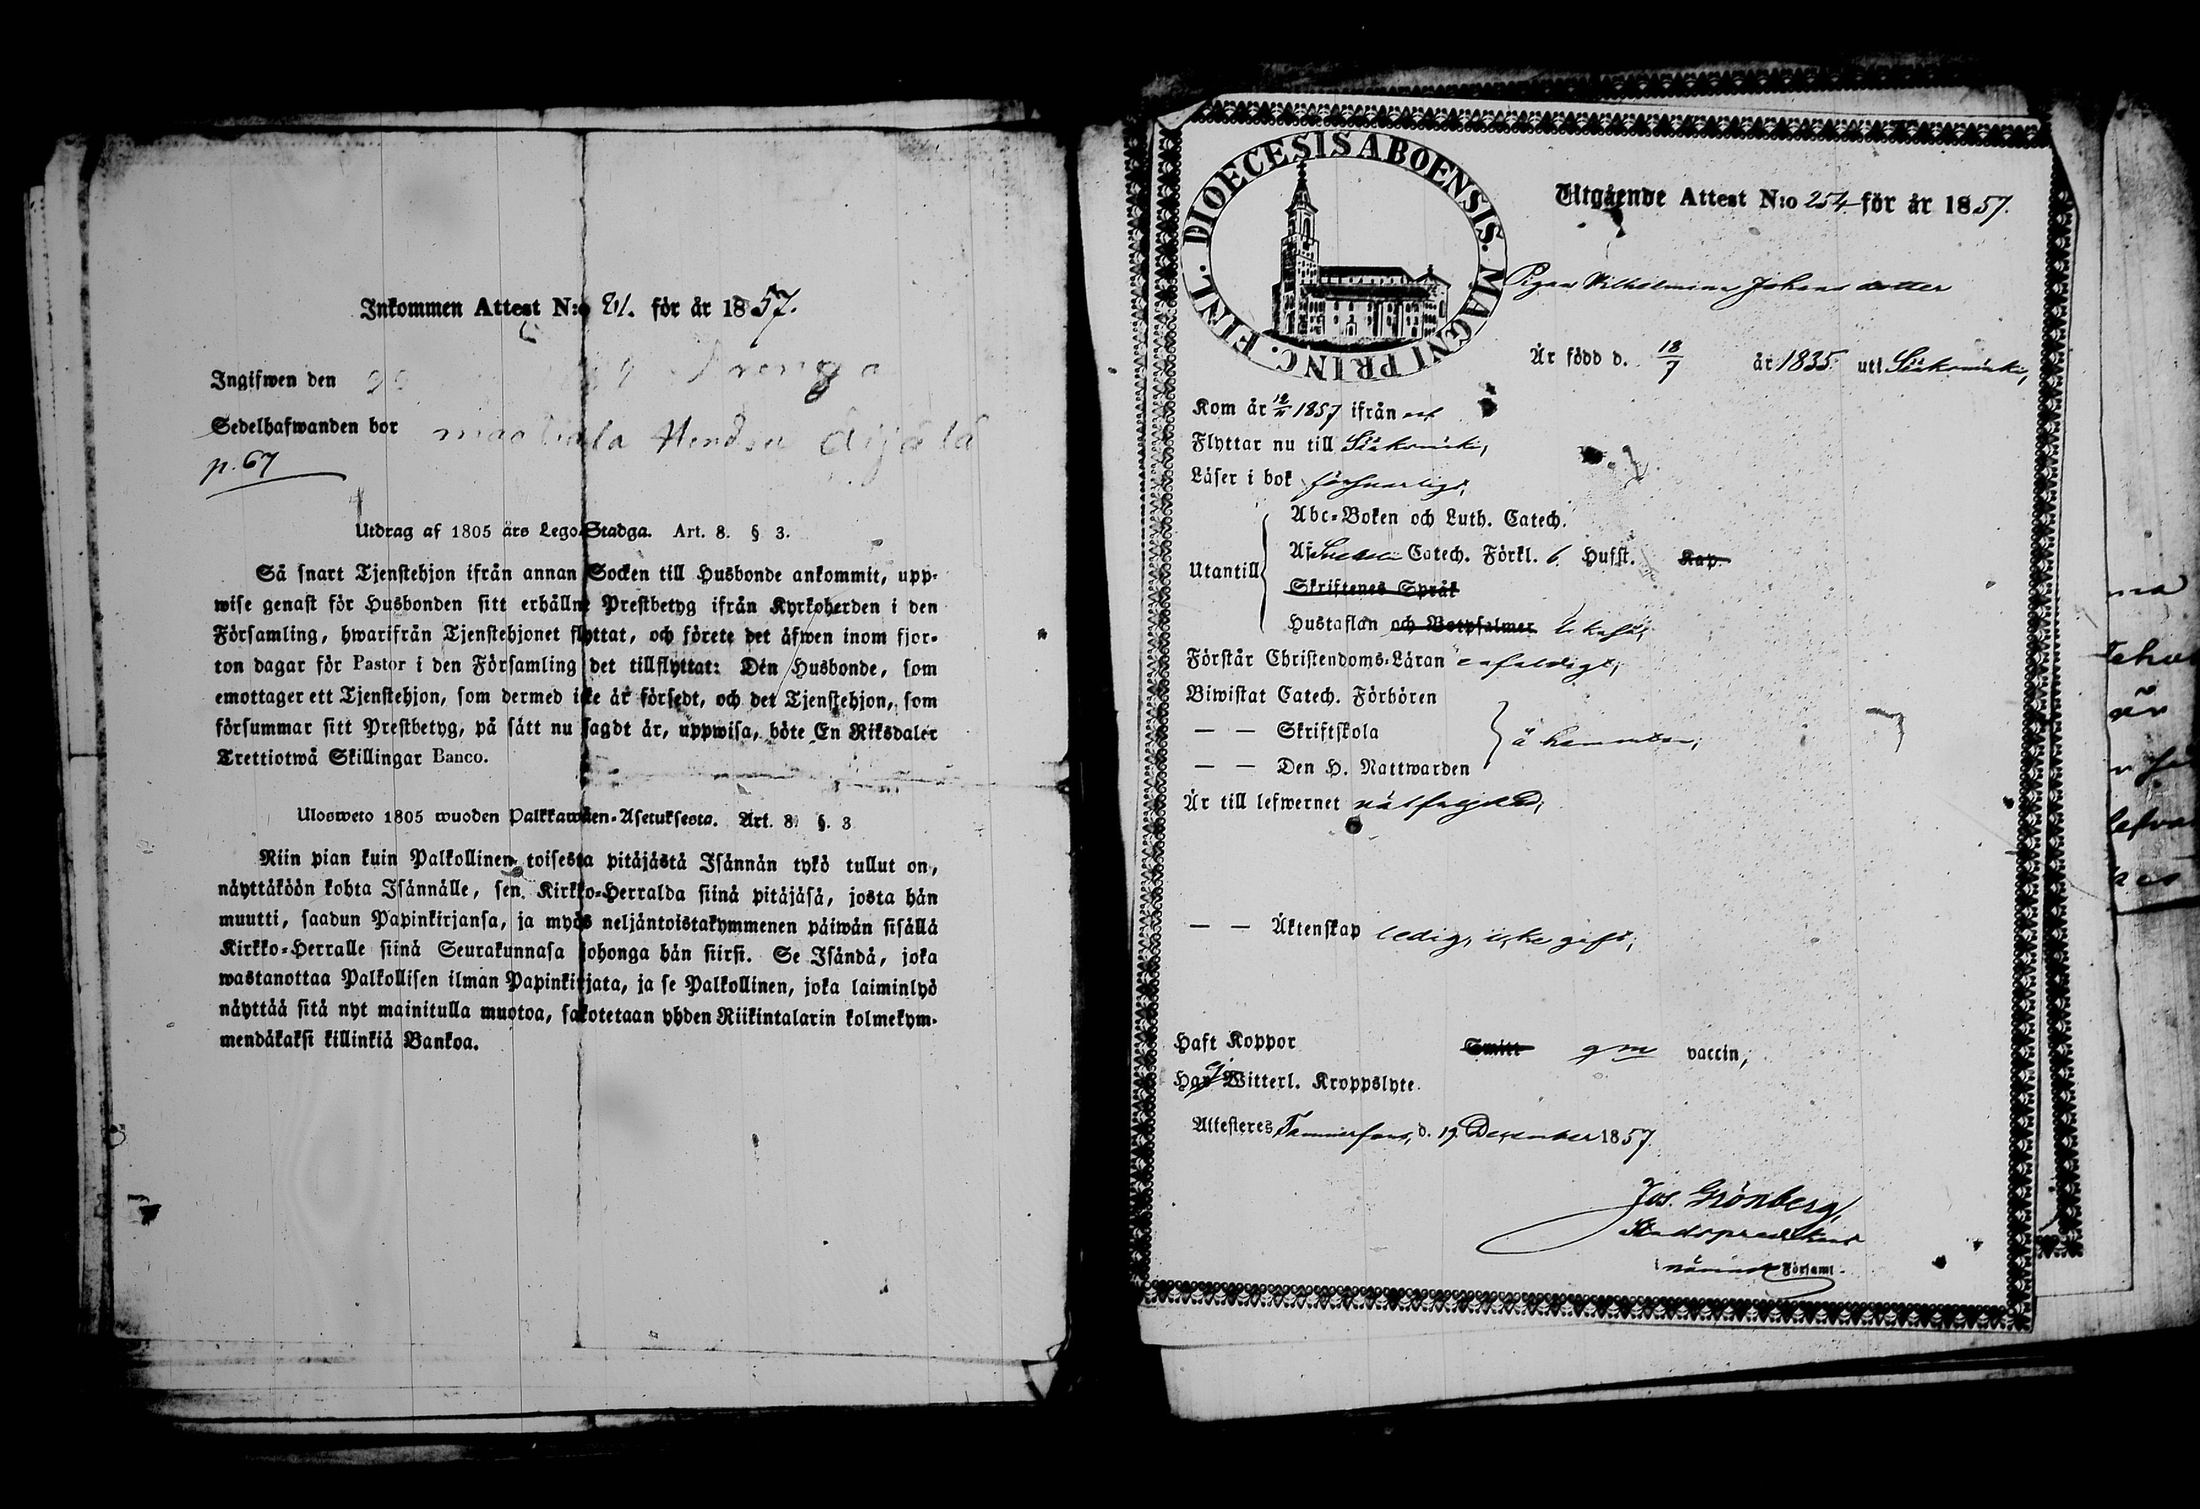 Inkommen Attest N:o 81. för år 1857.
Ingifwen den
Sedelhafwanden bor
p. 67
Utdrag af 1805 års Lego-Stadga. Art. 8. § 3.
Så snart Tjenstehjon ifrån annan Socken till Husbonde ankommit, upp-
wise genast för Husbonden sitt erhållne Prestbetyg ifrån Kyrkoherden i den
Församling, hwarifrån Tjenstehjonet flyttat, och förete det äfwen inom fjor-
ton dagar för Pastor i den Församling det tillflyttat: Den Husbonde, som
emottager ett Tjenstehjon, som dermed icke är försedt, och det Tjenstehjon, som
försummar sitt Prestbetyg, på sätt nu sagdt är, uppwisa, böte En Riksdaler
Trettiotwå Skillingar Banco.
Ulosweto 1805 wuoden Palkkawäen-Asetuksesta. Art. 8. §. 3
Niin pian kuin Palkollinen toisesta pitäjästä Isännän tykö tullut on,
näyttäköön kohta Isännälle, sen Kirkko-Herralda siinä pitäjäsä, josta hän
muutti, saadun Papinkirjansa, ja myös neljäntoistakymmenen päiwän sisällä
Kirkko-Herralle siinä Seurakunnasa johonga hän siirsi. Se Isändä, joka
wastanottaa Palkollisen ilman Papinkirjata, ja se Palkollinen, joka laiminlyö
näyttää sitä nyt mainitulla muotoa, sakotetaan yhden Riikintalarin kolmekym-
mendäkaksi killinkiä Bankoa.
DIOECESIS ABOENSIS. MAGNI PRINC. FINL.
Utgående Attest N:o 254 för år 1857.
Pigan Wilhelmina Johansdotter
Är född d. 18/7 år 1835. uti
Kom år 1857 ifrån
Flyttar nu till
Läser i bok försvarligt,
Utantill
Abc-Boken och Luth. Catech.
Af Catech. Förkl. 6. Hufst. Kap.
Skriftenes Språk
Hustaflan och Botpsalmer
Förstår Christendoms-Läran enfaldigt,
Biwistat Catech. Förhören
— — Skriftskola
— — Den H. Nattwarden
Är till lefwernet välfrejdad,
— — Äktenskap ledig, icke gift,
Haft Koppor Smitt gm vaccin,
Har Witterl. Kroppslyte.
Attesteres Tammerfors, d. 19 December 1857
Jos. Grönberg,
Stadspredikant
i Församl.